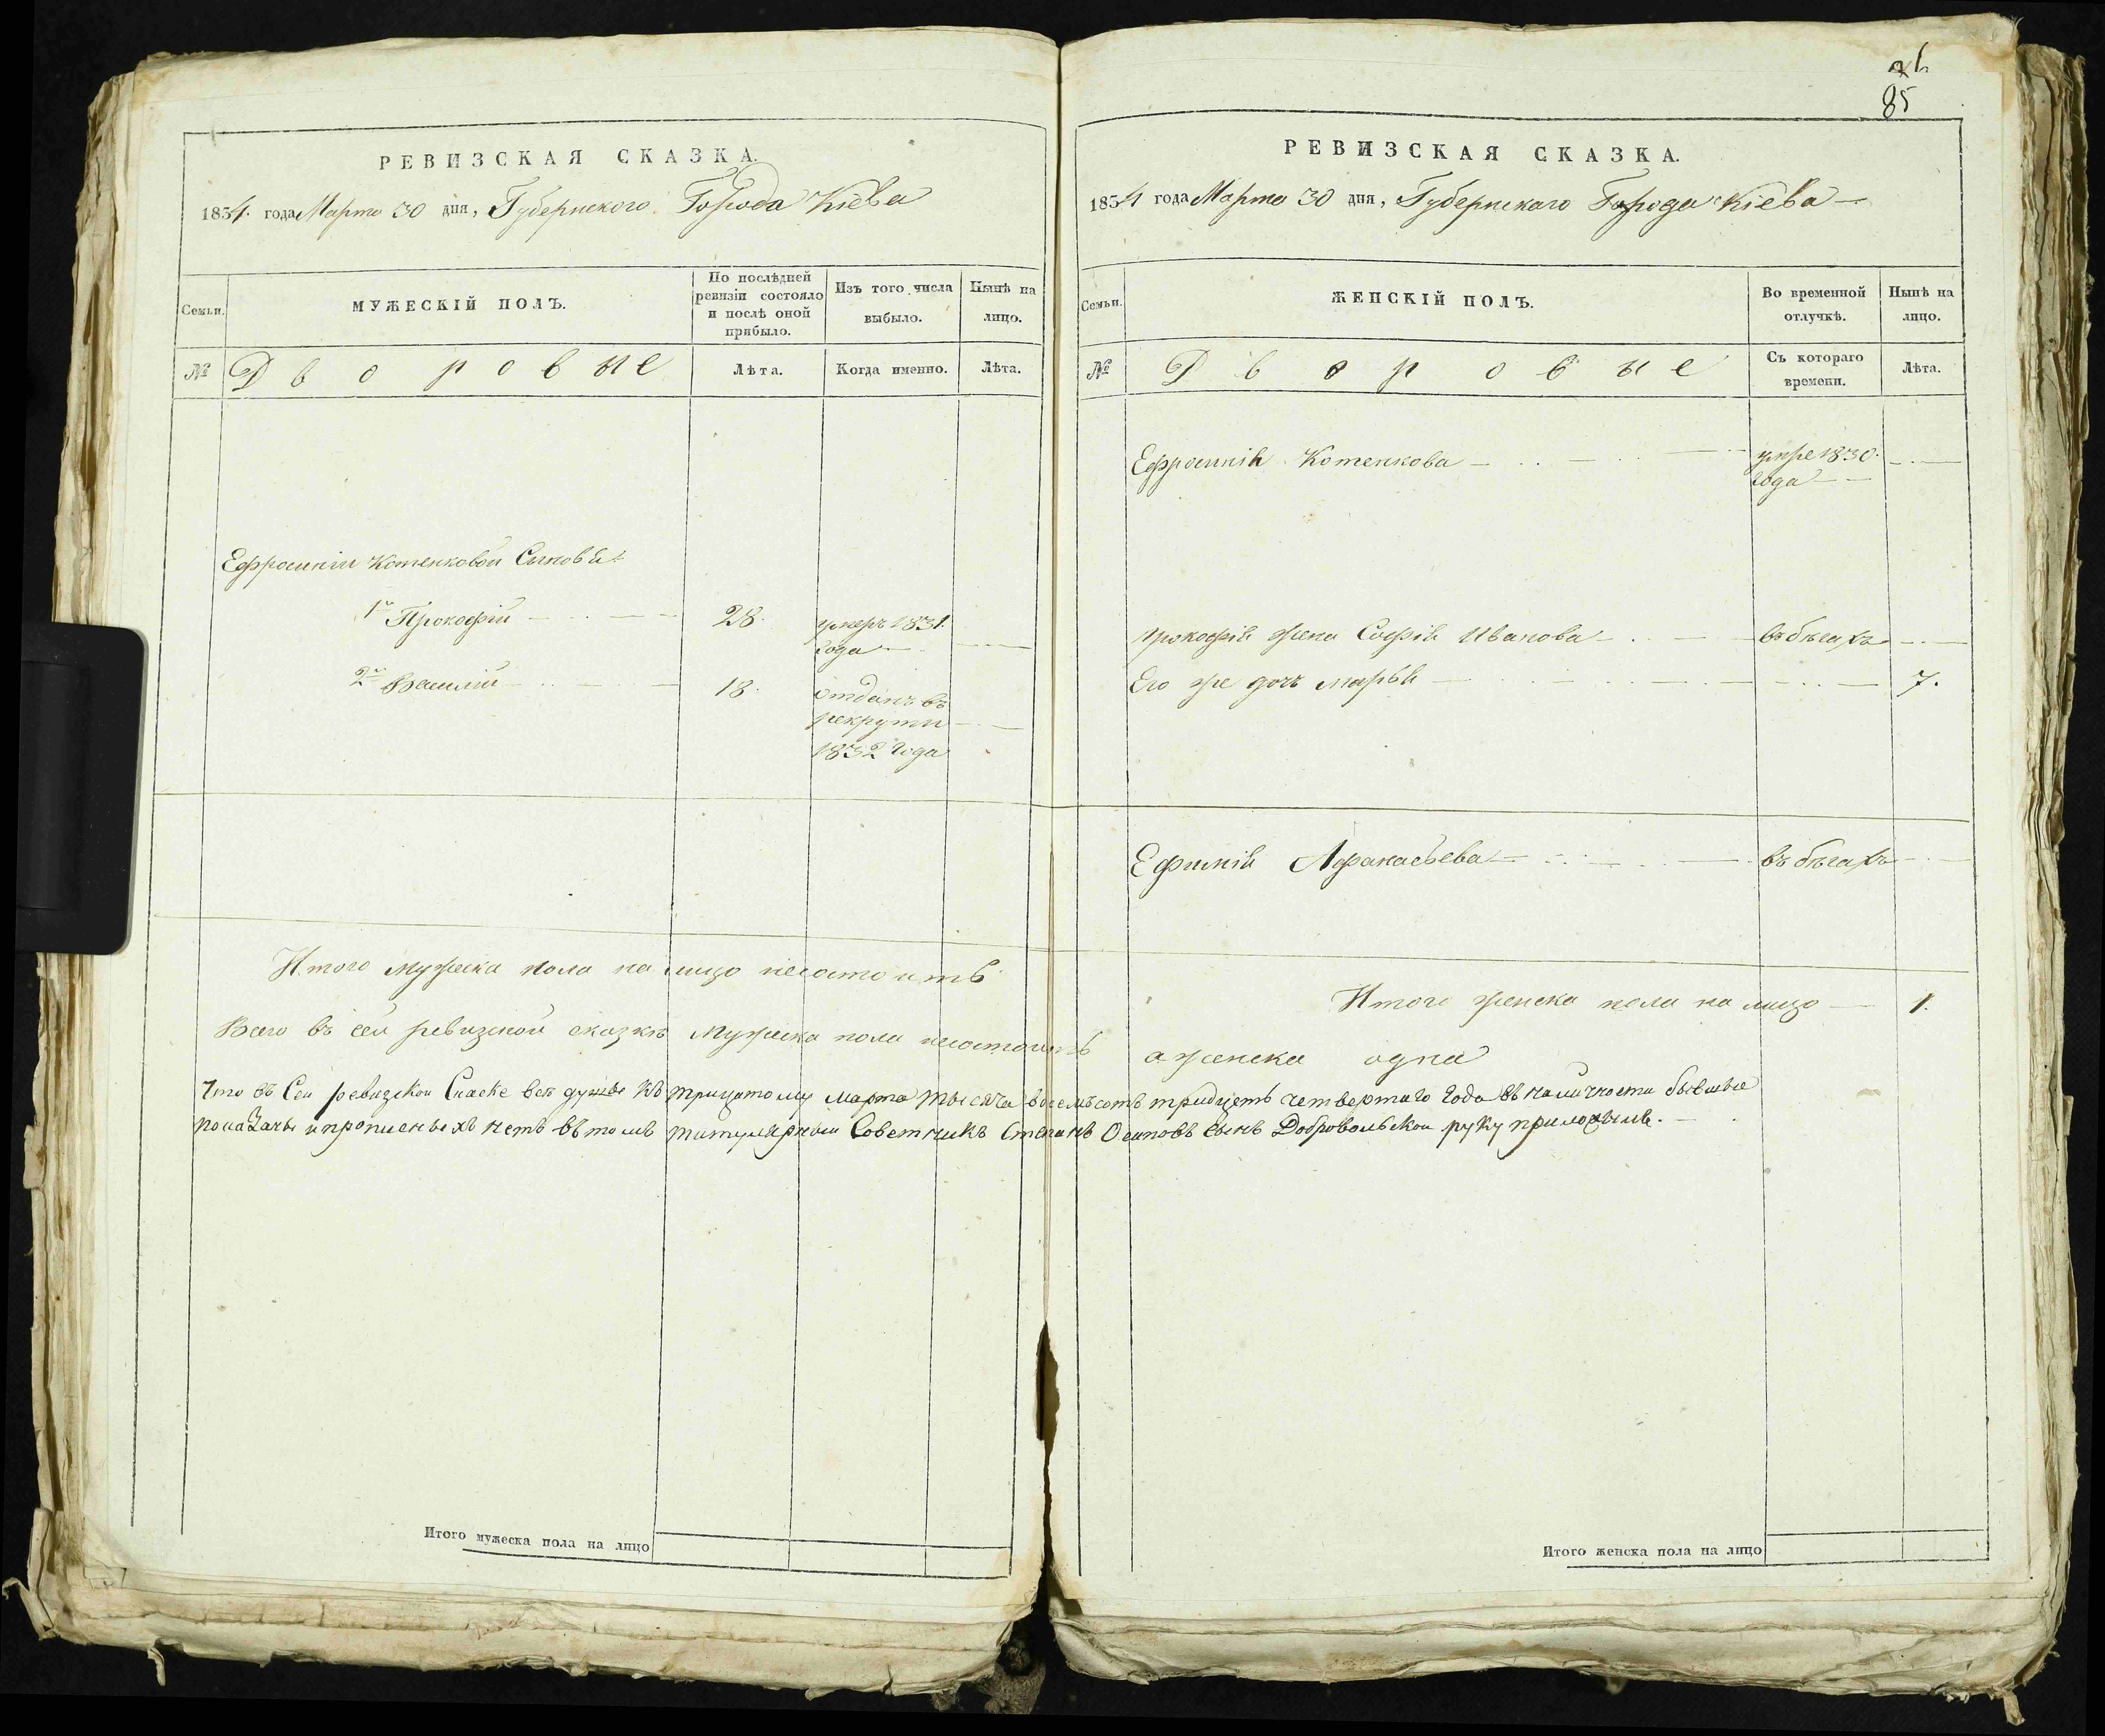 85
РЕВИЗСКАЯ СКАЗКА.
1834. года Марта 30 дня, Губернского Города Кіева
Семьи.
МУЖЕСКІЙ ПОЛЪ.
По послѣдней ревизіи состояло и послѣ оной прибыло.
Изъ того числа выбыло.
Нынѣ на лицо.
№
Дворовые
Лѣта.
Когда именно.
Лѣта.
Ефросиніи Котенковой Сыновья:
1й Прокофій 28. умеръ 1831.
года
2й Василій 18. отданъ въ
рекруты
1832 года
Итого мужеска пола на лицо несостоитъ
Всего въ сей ревизской сказкѣ мужеска пола несостоитъ
РЕВИЗСКАЯ СКАЗКА.
1834 года Марта 30 дня, Губернскаго Города Кіева
Семьи.
ЖЕНСКІЙ ПОЛЪ.
Во временной отлучкѣ.
Нынѣ на лицо.
№
Дворовые
Съ котораго времени.
Лѣта.
Ефросинія Котенкова умре 1830.
года
Прокофія жена Софія Иванова въ бѣгахъ
Его же дочь Марья 7.
Ефимія Афанасьева въ бѣгахъ
Итого женска пола на лицо 1.
а женска одна
Что въ Сей ревизской Скаске все душы къ трицатому марта тысяча восемъсотъ тридцеть четвертаго года въ наличности бывшые
показаны и прописныхъ нетъ въ томъ титулярный Советникъ Степанъ Осиповъ сынъ Добровольской руку приложылъ.
Итого мужеска пола на лицо
Итого женска пола на лицо